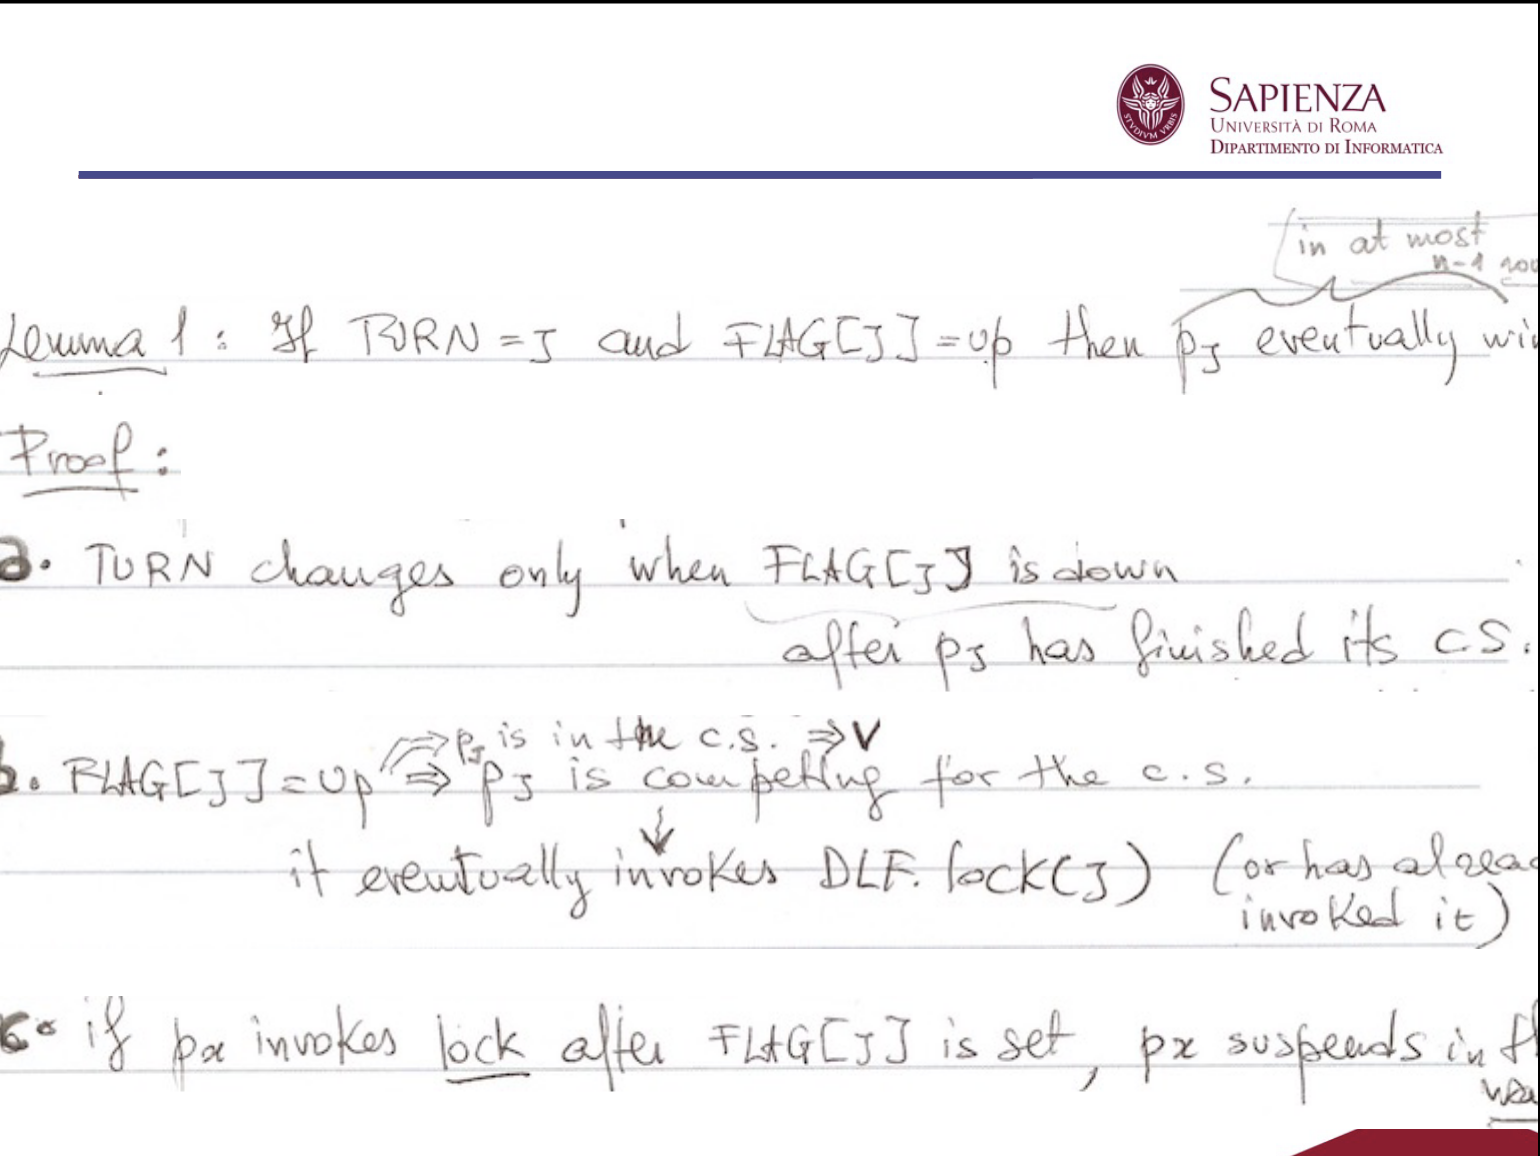 SAPIENZA
UNIVERSITÀ DI ROMA
DIPARTIMENTO DI INFORMATICA
in at most
n-1 rou
Lemma 1: If TURN = J and FLAG[J] = up then pJ eventually win
Proof:
a. TURN changes only when FLAG[J] is down
after pJ has finished its C.S.
⇒ pJ is in the c.s. ⇒ V
b. FLAG[J] = up ⇒ pJ is competing for the c.s.
it eventually invokes DLF.lock(J) (or has alrea
invoked it)
c. if px invokes lock after FLAG[J] is set, px suspends in th
wa